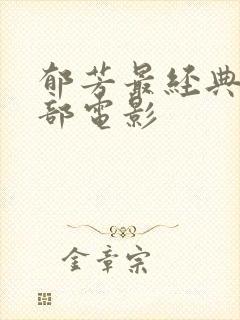 郁芳最经典
部电影
金章宗